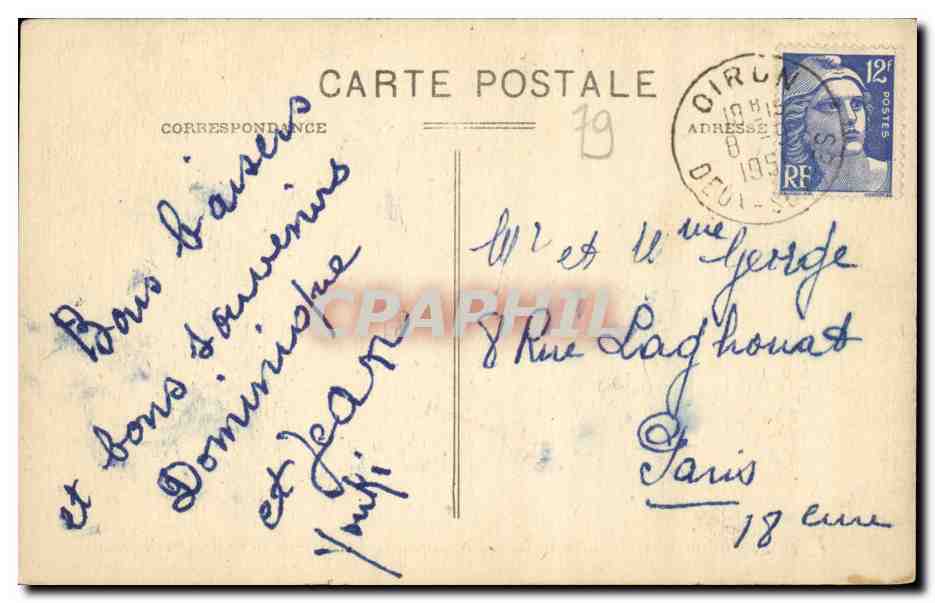 CARTE POSTALE
CORRESPONDANCE
ADRESSE
79
OIRON
8
195
DEUX-S
12F
POSTES
RF
Bons baisers
et bons souvenirs
Dominique
et Jean
Mr et Mme George
8 Rue Laghouat
Paris
18 eme
CPAPHIL